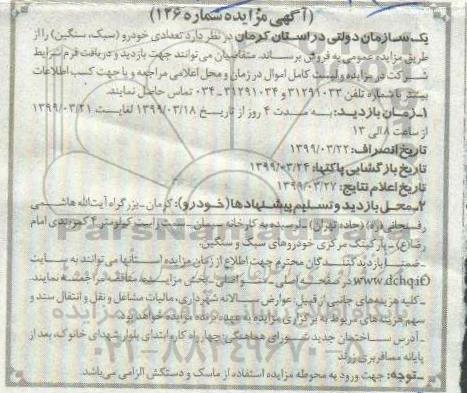 (آگهی مزایده شماره ۱۲۶)
یک سازمان دولتی در استان کرمان در نظر دارد تعدادی خودرو (سبک، سنگین) را از
طریق مزایده عمومی به فروش برساند. متقاضیان می توانند جهت بازدید و دریافت فرم شرایط
شرکت در مزایده و لیست کامل اموال در زمان و محل اعلامی مراجعه و یا جهت کسب اطلاعات
بیشتر با شماره تلفن ۳۱۲۹۱۰۳۳ و ۳۱۲۹۱۰۳۴ -۰۳۴ تماس حاصل نمایند.
۱ـ زمان بازدید: به مدت ۴ روز از تاریخ ۱۳۹۹/۰۳/۱۸ لغایت ۱۳۹۹/۰۳/۲۱
از ساعت ۸ الی ۱۳
تاریخ انصراف: ۱۳۹۹/۰۳/۲۲
تاریخ بازگشایی پاکتها: ۱۳۹۹/۰۳/۲۴
تاریخ اعلام نتایج: ۱۳۹۹/۰۳/۲۷
۲ـ محل بازدید و تسلیم پیشنهادها (خودرو): کرمان ـ بزرگراه آیت الله هاشمی
رفسنجانی (ره) (جاده تهران) ـ نرسیده به کارخانه سیمان ـ سمت راست کیلومتر ۴ کمربندی امام
رضا(ع) ـ پارکینگ مرکزی خودروهای سبک و سنگین.
ـ ضمنا بازدید کنندگان محترم جهت اطلاع از زمان مزایده استانها می توانند به سایت
www.dchq.ir در صفحه اصلی ـ منو اصلی ـ بخش مزایده، مناقصه مراجعه نمایند.
ـ کلیه هزینه های جانبی از قبیل: عوارض سالانه شهرداری، مالیات مشاغل و نقل و انتقال سند و
سهم هزینه های مربوط به برگزاری مزایده به عهده برنده مزایده خواهد بود.
ـ آدرس ساختمان جدید شورای هماهنگی: چهارراه کار ابتدای بلوار شهدای خانوک، بعد از
پایانه مسافربری زرند
ـ توجه: جهت ورود به محوطه مزایده استفاده از ماسک و دستکش الزامی می باشد.
ParsNamad
۰۲۱-۸۸۳۴۹۶۷۰